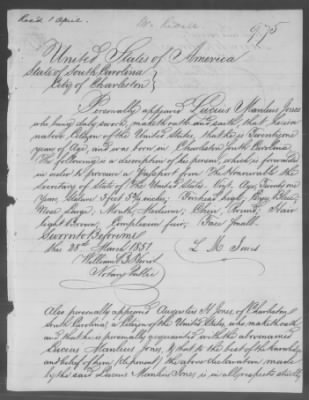 Recd 1 April.
975
United States of America
State of South Carolina
City of Charleston
Personally appeared Lucius Manlius Jones
who being duly sworn, maketh oath and saith, that he is a
native Citizen of the United States, that he is Twenty one
years of Age, and was born in Charleston South Carolina
The following is a description of his person, which is forwarded
in order to procure a Passport from the Honourable the
Secretary of State of The United States. Age Twenty one
Years, Stature 5 feet Inches, Forehead high, Eyes Blue,
Nose Large, Mouth, Medium, Chin, Round, Hair
light Brown, Complexion fair, Face Small.
Sworn to Before me
this 28th March 1851
L M Jones
William
Notary Public
Also personally appeared Augustus H Jones, of Charleston
South Carolina, a Citizen of the United States, who maketh oath,
and that he is personally acquainted with the abovenamed
Lucius Manlius Jones, & that to the best of the knowledge
and belief of him (deponent) the above declaration made
by the said Lucius Manlius Jones, is in all respects strictly